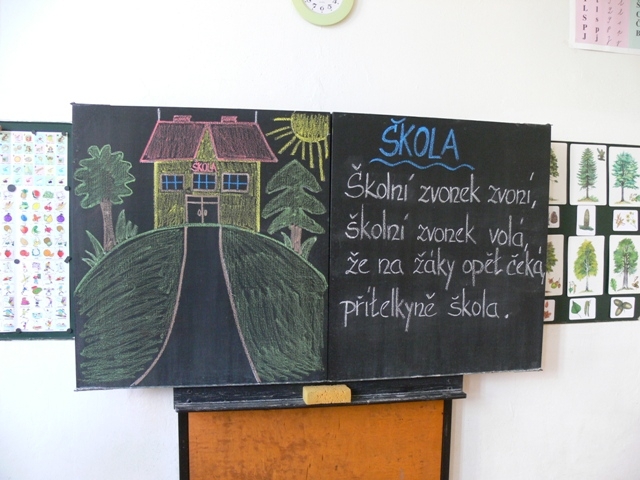 ŠKOLA
ŠKOLA
Školní zvonek zvoní,
školní zvonek volá,
že na žáky opět čeká,
přítelkyně škola.